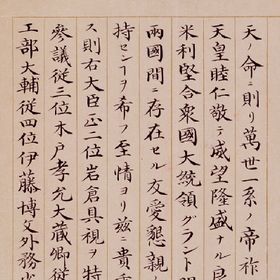 天ノ命ニ則リ萬世一系ノ帝祚
天皇睦仁敬テ威望隆盛ナル良
米利堅合衆國大統領グラント
兩國間ニ存在セル友愛懇親
持センヿヲ希フ至情ヨリ茲ニ貴
ス則右大臣正二位岩倉具視ヲ特
參議従三位木戸孝允大蔵卿従
工部大輔従四位伊藤博文外務